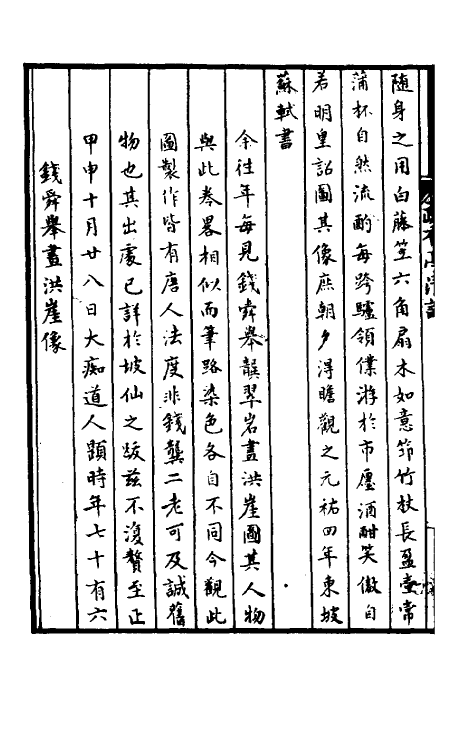 随身之用白藤笠六角扇木如意筇竹杖長盈壺常
蒲杯自然流酌每跨驢領僕游於市廛酒酣笑傲自
若明皇詔圖其像庶朝夕得瞻觀之元祐四年東坡
蘇軾書
余往年每見錢舜舉龔翠岩畫洪崖圖其人物
與此卷畧相似而筆路染色各自不同今觀此
圖製作皆有唐人法度非錢龔二老可及誠舊
物也其出處已詳於坡仙之跋兹不復贅至正
甲申十月廿八日大痴道人題時年七十有六
錢舜舉畫洪崖像